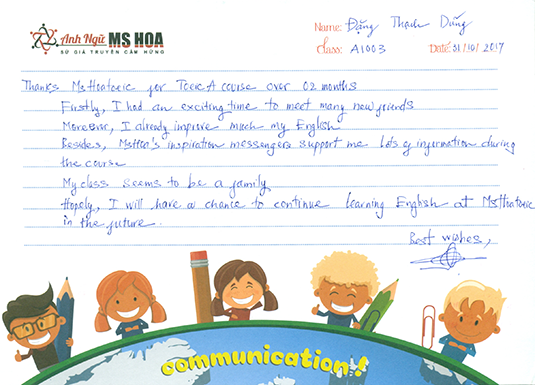 Anh Ngữ MS HOA
SỨ GIẢ TRUYỀN CẢM HỨNG
Name: Đặng Thạch Dũng
Class: A1003 Date: 31/10/2017
Thanks MsHoatoeic for TOEIC A course over 02 months
Firstly, I had an exciting time to meet many new friends
Moreover, I already improve much my English
Besides, MsHoa's inspiration messengers support me lots of information during
the course
My class seems to be a family
Hopely, I will have a chance to continue learning English at MsHoatoeic
in the future.
Best wishes,
communication!